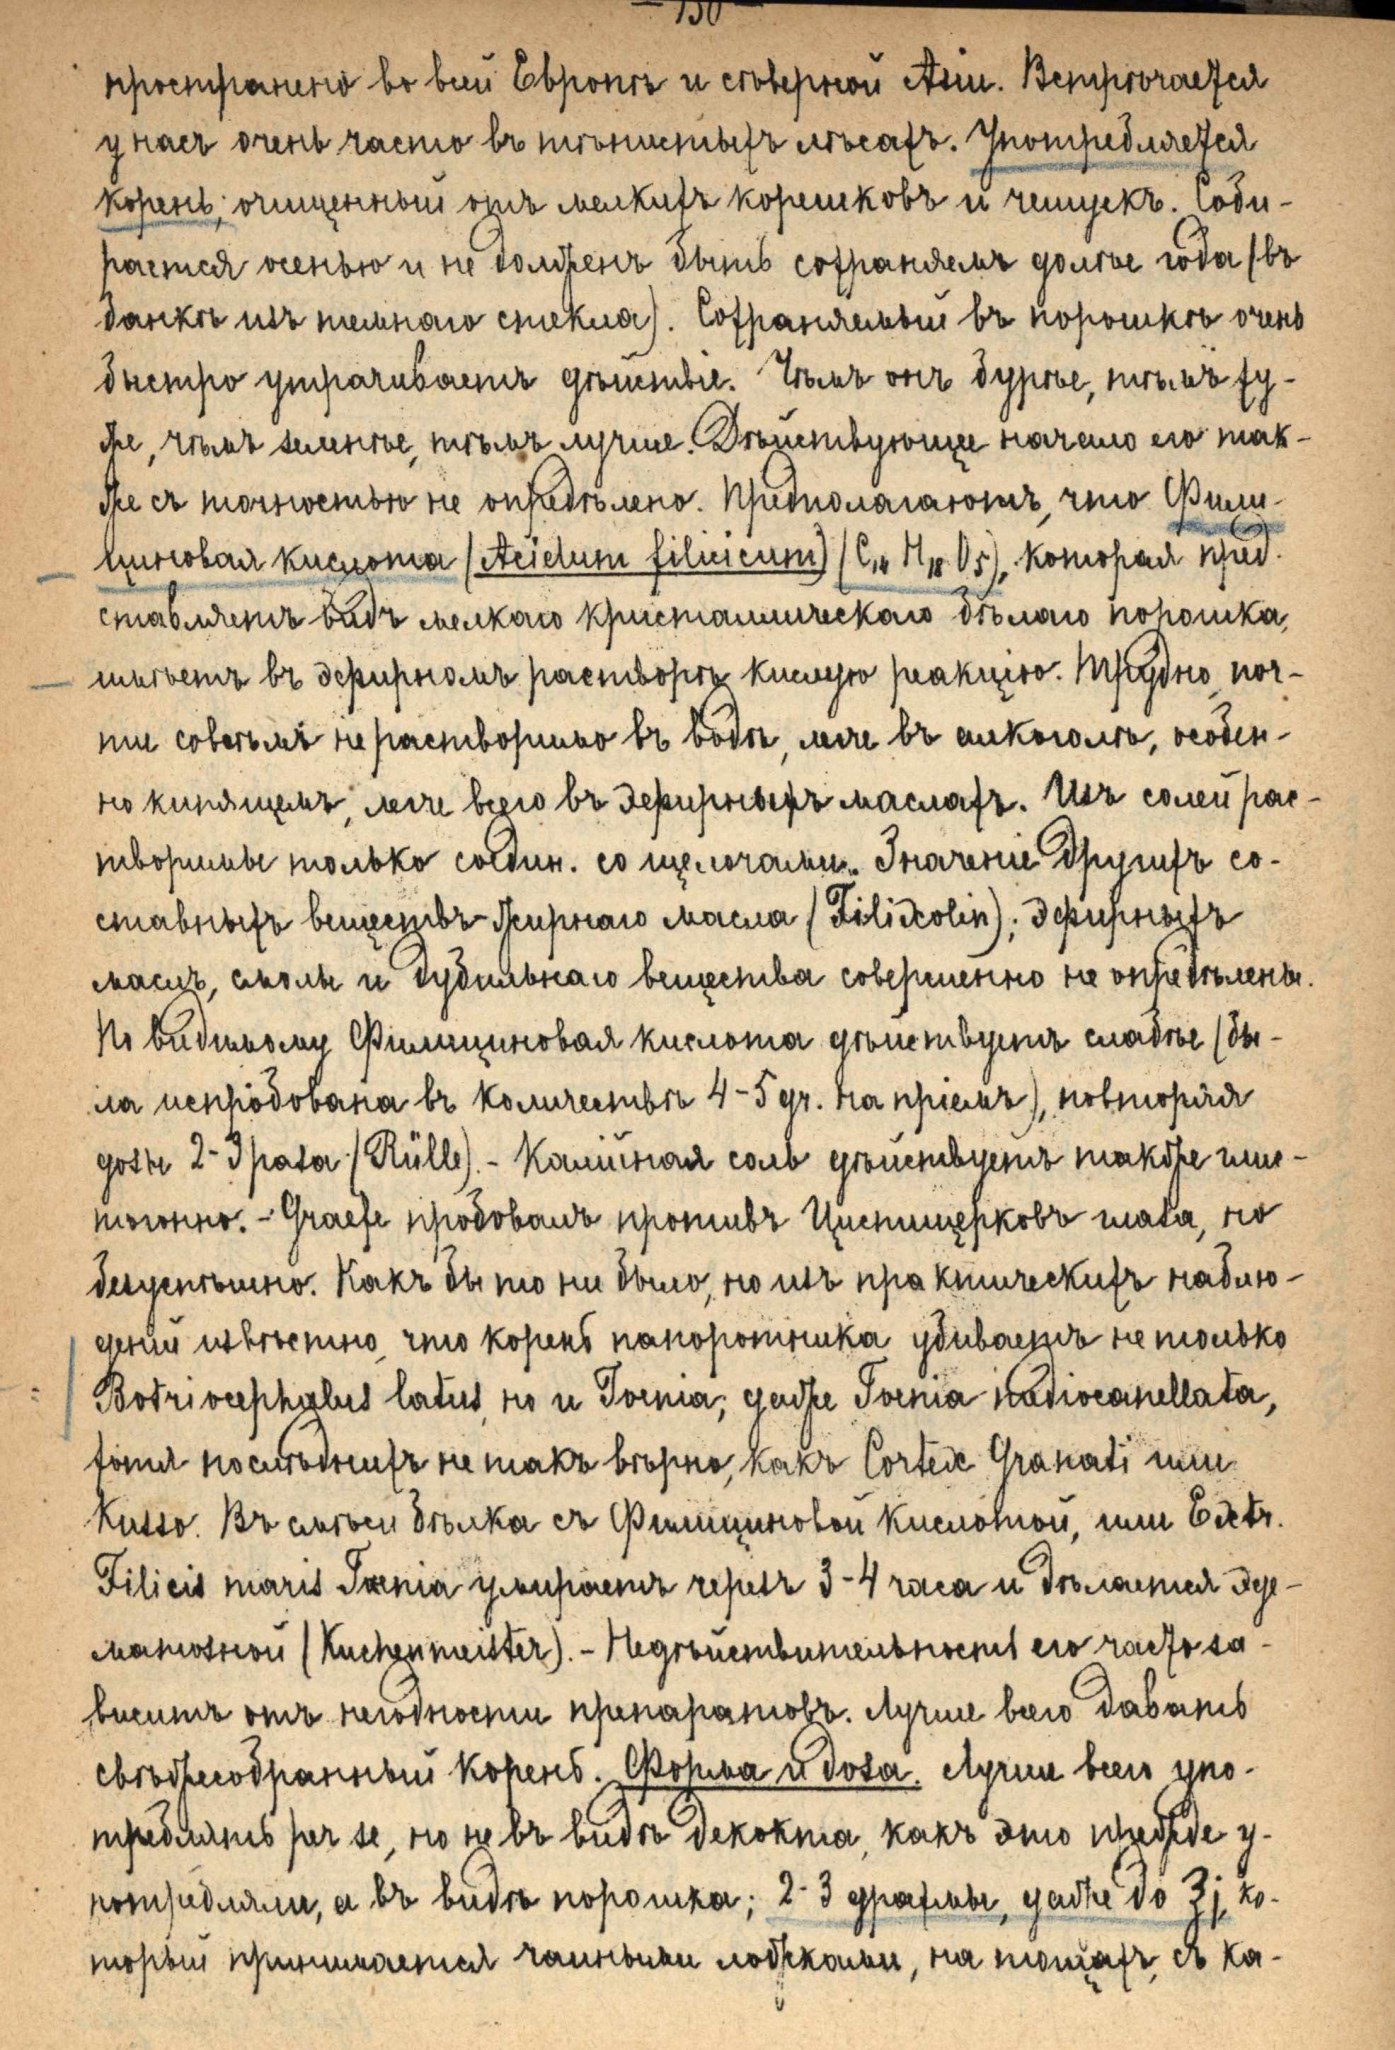 — 150 —
пространенъ во всей Европѣ и сѣверной Азіи. Встрѣчается
у насъ очень часто въ тѣнистыхъ лѣсахъ. Употребляется
корень, очищенный отъ мелкихъ корешковъ и чешуекъ. Соби-
рается осенью и не долженъ быть сохраняемъ долѣе года (въ
банкѣ изъ темнаго стекла). Сохраняемый въ порошкѣ очень
быстро утрачиваетъ дѣйствіе. Чѣмъ онъ бурѣе, тѣмъ ху-
же, чѣмъ зеленѣе, тѣмъ лучше. Дѣйствующее начало его так-
же съ точностью не опредѣлено. Предполагаютъ, что Фили-
циновая кислота (Acidum filicicum) (C14 H18 O5), которая пред-
ставляетъ видъ мелкаго кристаллическаго бѣлаго порошка,
имѣетъ въ эфирномъ растворѣ кислую реакцію. Трудно, поч-
ти совсѣмъ не растворимо въ водѣ, легче въ алкоголѣ, особен-
но кипящемъ, легче всего въ эфирныхъ маслахъ. Изъ солей рас-
творимы только соедин. со щелочами. Значеніе другихъ со-
ставныхъ веществъ - жирнаго масла (Filixolin); эфирныхъ
маслъ, смолы и дубильнаго вещества совершенно не опредѣлены.
По видимому Филициновая кислота дѣйствуетъ слабѣе (бы-
ла испробована въ количествѣ 4-5 gr. на пріемъ), повторяя
дозы 2-3 раза (Rülle). - Калійная соль дѣйствуетъ также глис-
тогонно. - Graefe пробовалъ противъ Цистицерковъ глаза, но
безуспѣшно. Какъ бы то ни было, но изъ практическихъ наблю-
деній извѣстно, что корень папоротника убиваетъ не только
Botriocephalus latus, но и Toenia; даже Toenia mediocanellata,
хотя послѣднихъ не такъ вѣрно, какъ Cortex Granati или
Kusso. Въ смѣси бѣлка съ Филициновой кислотой, или Extr.
Filicis maris Taenia умираетъ черезъ 3-4 часа и дѣлается эде-
матозной (Kuchenmeister). - Недѣйствительность его часто за-
виситъ отъ негодности препаратовъ. Лучше всего давать
свѣжесобранный корень. Форма и доза. Лучше всего упо-
треблять per se, но не въ видѣ декокта, какъ это прежде у-
потребляли, а въ видѣ порошка; 2-3 драхмы, даже до ℥j, ко-
торый принимается чайными ложками, на тощахъ, съ ка-